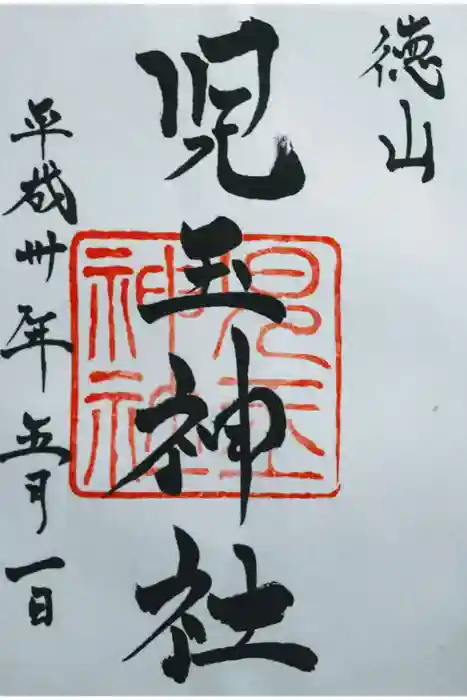 徳山
児玉神社
平成卅年五月一日
児玉神社